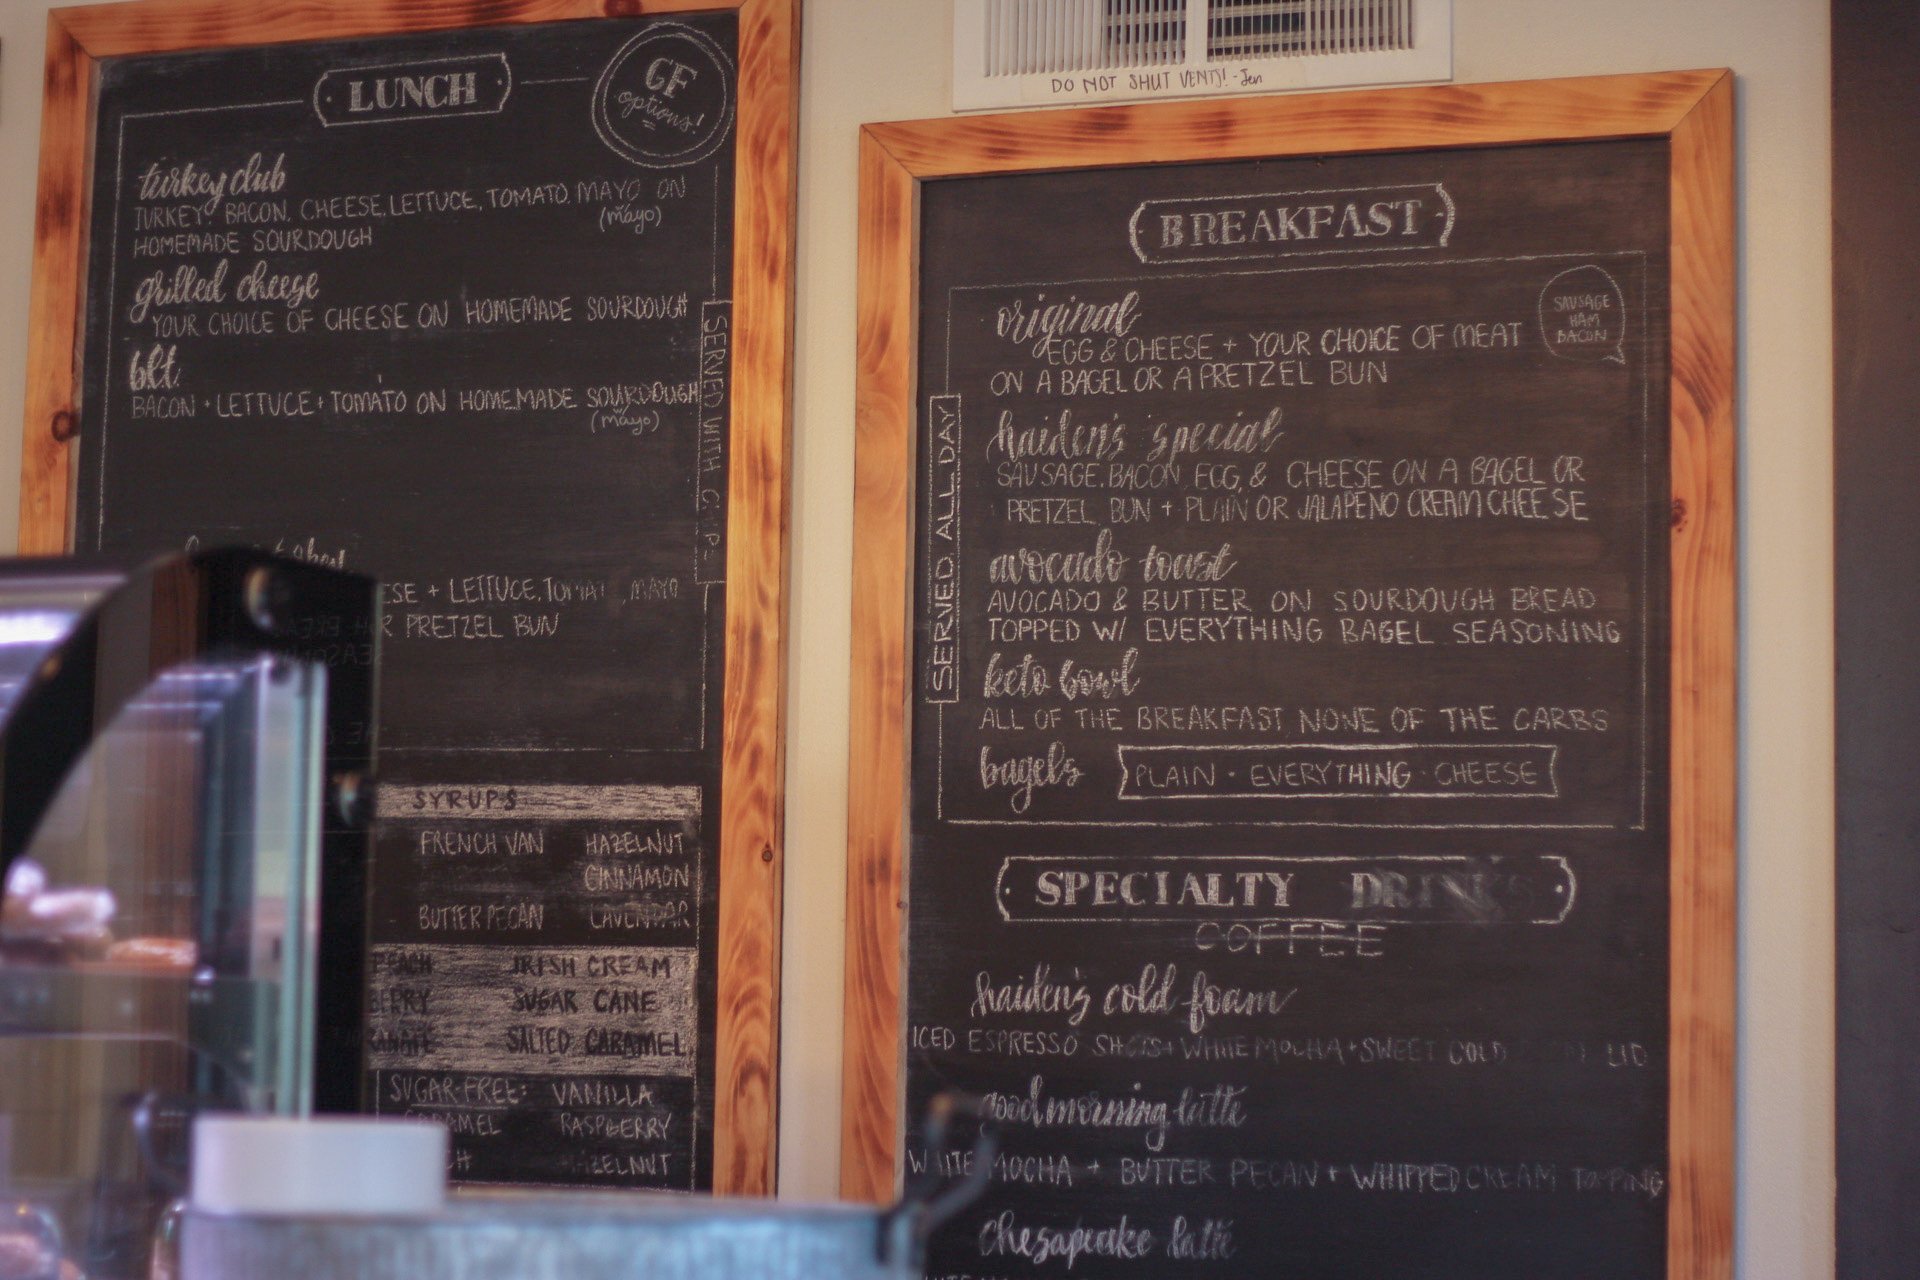 LUNCH
GF
options!
turkey club
TURKEY, BACON, CHEESE, LETTUCE, TOMATO, MAYO ON
(mayo)
HOMEMADE SOURDOUGH
grilled cheese
YOUR CHOICE OF CHEESE ON HOMEMADE SOURDOUGH
blt
BACON + LETTUCE + TOMATO ON HOMEMADE SOURDOUGH
(mayo)
SERVED WITH
+ LETTUCE, TOMAT , MAYO
PRETZEL BUN
SYRUPS
FRENCH VAN HAZELNUT
CINNAMON
BUTTER PECAN LAVENDAR
PEACH IRISH CREAM
SUGAR CANE
SALTED CARAMEL
SUGAR-FREE: VANILLA
RASPBERRY
HAZELNUT
DO NOT SHUT VENTS! -Jen
BREAKFAST
SAUSAGE
HAM
BACON
original
EGG & CHEESE + YOUR CHOICE OF MEAT
ON A BAGEL OR A PRETZEL BUN
haiden's special
SAUSAGE, BACON, EGG, & CHEESE ON A BAGEL OR
PRETZEL BUN + PLAIN OR JALAPENO CREAM CHEESE
avocado toast
AVOCADO & BUTTER ON SOURDOUGH BREAD
TOPPED W/ EVERYTHING BAGEL SEASONING
keto bowl
ALL OF THE BREAKFAST, NONE OF THE CARBS
bagels PLAIN · EVERYTHING · CHEESE
SERVED ALL DAY
SPECIALTY DRINKS
COFFEE
haiden's cold foam
ICED ESPRESSO SHOTS + WHITE MOCHA + SWEET COLD LID
good morning latte
WHITE MOCHA + BUTTER PECAN + WHIPPED CREAM TOPPING
chesapeake latte